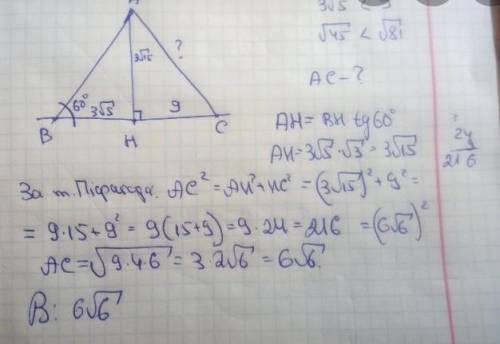 3√5 < 9
√45 < √81
3√15
?
AC - ?
60°
3√5
9
B
H
C
AH = BH tg60°
AH = 3√5 · √3 = 3√15
24
216
За т. Піфагора. AC² = AH² + HC² = (3√15)² + 9² =
= 9·15 + 9² = 9(15+9) = 9·24 = 216 = (6√6)²
AC = √9·4·6 = 3·2√6 = 6√6.
В: 6√6